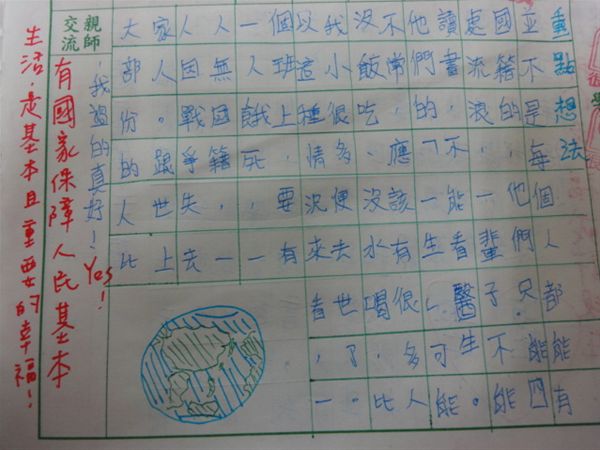 重點想法
並不是每個人都能有
國籍的，他們只能四
處流浪，一輩子不能
讀書，不能看醫生。
他們的「一生」可能
不常，應該有很多人
沒飯吃，沒水喝，比
我小很多，便去世了。
以這種情況來看，一
個班上，要有
一人餓死，一
人無国籍，一
人因戰爭失去
家人。跟世上
大部份的人比
，我過的真好！Yes!
親師交流
有國家保障人民基本
生活，是基本且重要的幸福！